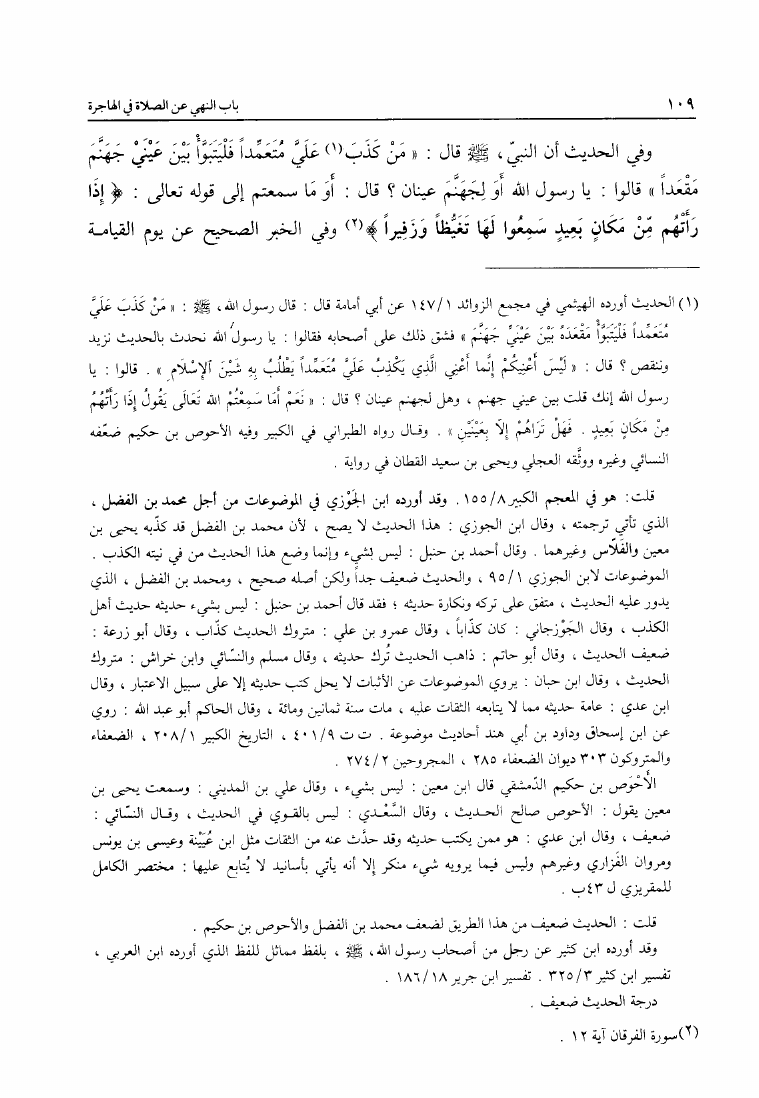 ١٠٩ باب النهي عن الصلاة في الهاجرة
وفي الحديث أن النبيّ، ﷺ قال : « مَنْ كَذَبَ(١) عَلَيَّ مُتَعَمِّداً فَلْيَتَبَوَّأْ بَيْنَ عَيْنَيْ جَهَنَّمَ
مَقْعَداً » قالوا : يا رسول الله أَوَ لِجَهَنَّمَ عينان ؟ قال : أَوَ مَا سمعتم إلى قوله تعالى : ﴿ إِذَا
رَأَتْهُم مِّنْ مَكَانٍ بَعِيدٍ سَمِعُوا لَهَا تَغَيُّظاً وَزَفِيراً ﴾(٢) وفي الخبر الصحيح عن يوم القيامة
(١) الحديث أورده الهيثمي في مجمع الزوائد ١٤٧/١ عن أبي أمامة قال : قال رسول الله، ﷺ : « مَنْ كَذَبَ عَلَيَّ
مُتَعَمِّداً فَلْيَتَبَوَّأْ مَقْعَدَهُ بَيْنَ عَيْنَيْ جَهَنَّمَ » فشق ذلك على أصحابه فقالوا : يا رسول الله نحدث بالحديث نزيد
وننقص ؟ قال : « لَيْسَ أَعْنِيكُمْ إِنَّما أَعْنِي الَّذِي يَكْذِبُ عَلَيَّ مُتَعَمِّداً يَطْلُبُ بِهِ شَيْنَ الإِسْلَامِ » . قالوا : يا
رسول الله إنك قلت بين عيني جهنم ، وهل لجهنم عينان ؟ قال : « نَعَمْ أَمَا سَمِعْتُمُ الله تَعَالَى يَقُولُ إِذَا رَأَتْهُمْ
مِنْ مَكَانٍ بَعِيدٍ . فَهَلْ تَرَاهُمْ إِلَّا بِعَيْنَيْنِ » . وقال رواه الطبراني في الكبير وفيه الأحوص بن حكيم ضعّفه
النسائي وغيره ووثّقه العجلي ويحيى بن سعيد القطان في رواية .
قلت: هو في المعجم الكبير ١٥٥/٨. وقد أورده ابن الجَوْزي في الموضوعات من أجل محمد بن الفضل ،
الذي تأتي ترجمته ، وقال ابن الجوزي : هذا الحديث لا يصح ، لأن محمد بن الفضل قد كذّبه يحيى بن
معين والفَلّاس وغيرهما . وقال أحمد بن حنبل : ليس بشيء وإنما وضع هذا الحديث من في نيته الكذب .
الموضوعات لابن الجوزي ٩٥/١ ، والحديث ضعيف جداً ولكن أصله صحيح ، ومحمد بن الفضل ، الذي
يدور عليه الحديث ، متفق على تركه ونكارة حديثه ؛ فقد قال أحمد بن حنبل : ليس بشيء حديثه حديث أهل
الكذب ، وقال الجَوْزجاني : كان كذّاباً ، وقال عمرو بن علي : متروك الحديث كذّاب ، وقال أبو زرعة :
ضعيف الحديث ، وقال أبو حاتم : ذاهب الحديث تُرك حديثه ، وقال مسلم والنسّائي وابن خراش : متروك
الحديث ، وقال ابن حبان : يروي الموضوعات عن الأثبات لا يحل كتب حديثه إلا على سبيل الاعتبار ، وقال
ابن عدي : عامة حديثه مما لا يتابعه الثقات عليه ، مات سنة ثمانين ومائة ، وقال الحاكم أبو عبد الله : روي
عن ابن إسحاق وداود بن أبي هند أحاديث موضوعة . ت ت ٤٠١/٩ ، التاريخ الكبير ٢٠٨/١ ، الضعفاء
والمتروكون ٣٠٣ ديوان الضعفاء ٢٨٥ ، المجروحين ٢٧٤/٢ .
الأَحْوَص بن حكيم الدّمشقي قال ابن معين : ليس بشيء ، وقال علي بن المديني : وسمعت يحيى بن
معين يقول : الأحوص صالح الحديث ، وقال السَّعْدي : ليس بالقوي في الحديث ، وقال النسّائي :
ضعيف ، وقال ابن عدي : هو ممن يكتب حديثه وقد حدَّث عنه من الثقات مثل ابن عُيَيْنة وعيسى بن يونس
ومروان الفَزاري وغيرهم وليس فيما يرويه شيء منكر إلا أنه يأتي بأسانيد لا يُتابع عليها : مختصر الكامل
للمقريزي ل ٤٣ب .
قلت : الحديث ضعيف من هذا الطريق لضعف محمد بن الفضل والأحوص بن حكيم .
وقد أورده ابن كثير عن رجل من أصحاب رسول الله، ﷺ ، بلفظ مماثل للفظ الذي أورده ابن العربي ،
تفسير ابن كثير ٣٢٥/٣ . تفسير ابن جرير ١٨٦/١٨ .
درجة الحديث ضعيف .
(٢) سورة الفرقان آية ١٢ .